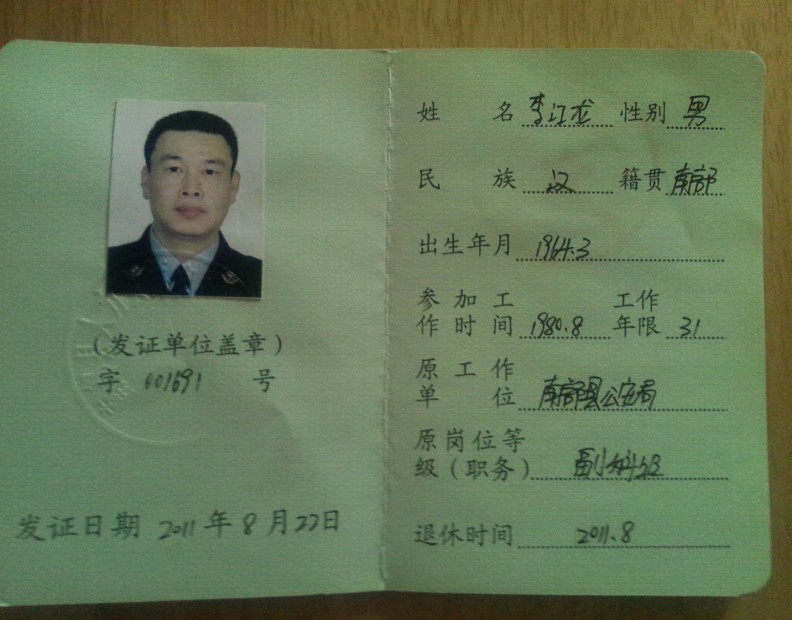 (发证单位盖章)
字 001691 号
发证日期 2011年8月22日
姓名 李江龙 性别 男
民族 汉 籍贯 南部
出生年月 1964.3
参加工作时间 1980.8 工作年限 31
原工作单位 南部县公安局
原岗位等级(职务) 副科级
退休时间 2011.8